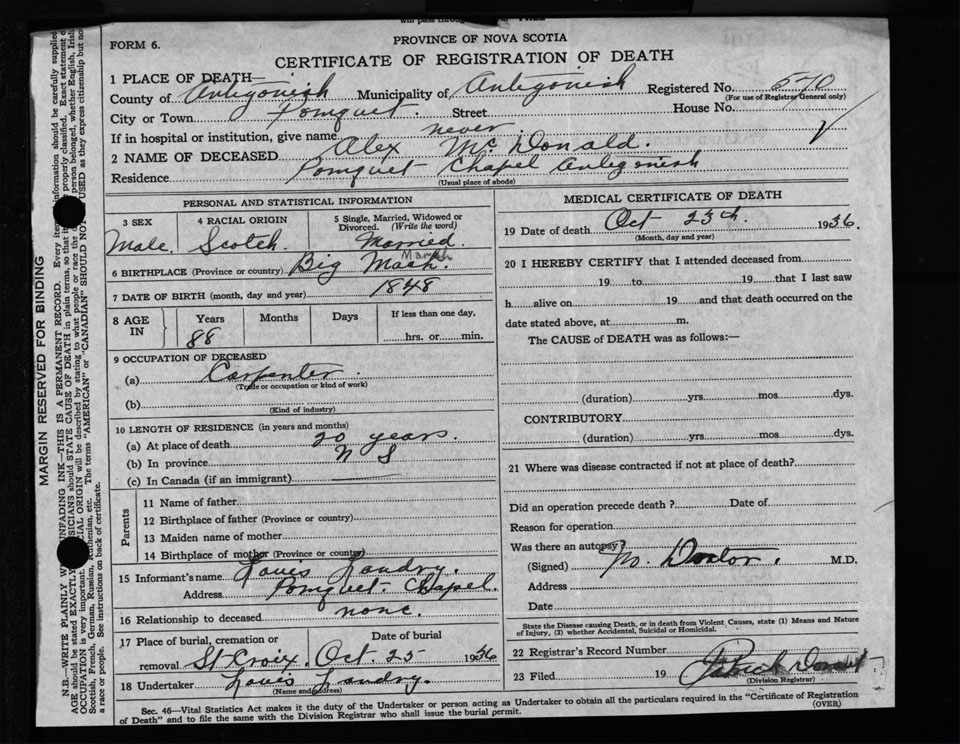 FORM 6.
PROVINCE OF NOVA SCOTIA
CERTIFICATE OF REGISTRATION OF DEATH
1 PLACE OF DEATH—
County of Antigonish Municipality of Antigonish Registered No. 570
(For use of Registrar General only)
City or Town Pomquet. Street House No.
If in hospital or institution, give name never
2 NAME OF DECEASED Alex McDonald.
Residence Pomquet Chapel Antigonish
(Usual place of abode)
PERSONAL AND STATISTICAL INFORMATION
3 SEX
Male.
4 RACIAL ORIGIN
Scotch.
5 Single, Married, Widowed or
Divorced. (Write the word)
Married.
6 BIRTHPLACE (Province or country) Big Marsh.
Marsh
7 DATE OF BIRTH (month, day and year) 1848
8 AGE
IN
Years
88
Months
Days
If less than one day,
hrs. or min.
9 OCCUPATION OF DECEASED
(a) Carpenter.
(Trade or occupation or kind of work)
(b)
(Kind of industry)
10 LENGTH OF RESIDENCE (in years and months)
(a) At place of death 20 years.
(b) In province N S
(c) In Canada (if an immigrant)
Parents
11 Name of father
12 Birthplace of father (Province or country)
13 Maiden name of mother
14 Birthplace of mother (Province or country)
15 Informant's name Louis Landry.
Address Pomquet Chapel
16 Relationship to deceased none.
17 Place of burial, cremation or
removal St Croix.
Date of burial
Oct. 25 1936
18 Undertaker Louis Landry.
(Name and address)
MEDICAL CERTIFICATE OF DEATH
19 Date of death Oct 23rd. 1936.
(Month, day and year)
20 I HEREBY CERTIFY that I attended deceased from
19 to 19 that I last saw
h alive on 19 and that death occurred on the
date stated above, at m.
The CAUSE of DEATH was as follows:—
(duration) yrs. mos. dys.
CONTRIBUTORY
(duration) yrs. mos. dys.
21 Where was disease contracted if not at place of death?
Did an operation precede death? Date of
Reason for operation
Was there an autopsy?
(Signed) No. Doctor. M.D.
Address
Date
State the Disease causing Death, or in death from Violent Causes, state (1) Means and Nature
of Injury, (2) whether Accidental, Suicidal or Homicidal.
22 Registrar's Record Number
23 Filed 19 Patrick
(Division Registrar)
Sec. 46—Vital Statistics Act makes it the duty of the Undertaker or person acting as Undertaker to obtain all the particulars required in the "Certificate of Registration
of Death" and to file the same with the Division Registrar who shall issue the burial permit.
(OVER)
MARGIN RESERVED FOR BINDING
N.B.—WRITE PLAINLY UNFADING INK—THIS IS A PERMANENT RECORD. Every information should be carefully supplied
AGE should be stated EXACTLY should STATE CAUSE OF DEATH in plain terms, so that it properly classified. Exact statement of
OCCUPATION is very important. ORIGIN will be described by stating to what people or race the person belonged, whether English, Irish
Scottish, French, German, Russian, Ruthenian, etc. The terms "AMERICAN" or "CANADIAN" SHOULD NOT USED as they express citizenship but not
a race or people. See instructions on back of certificate.